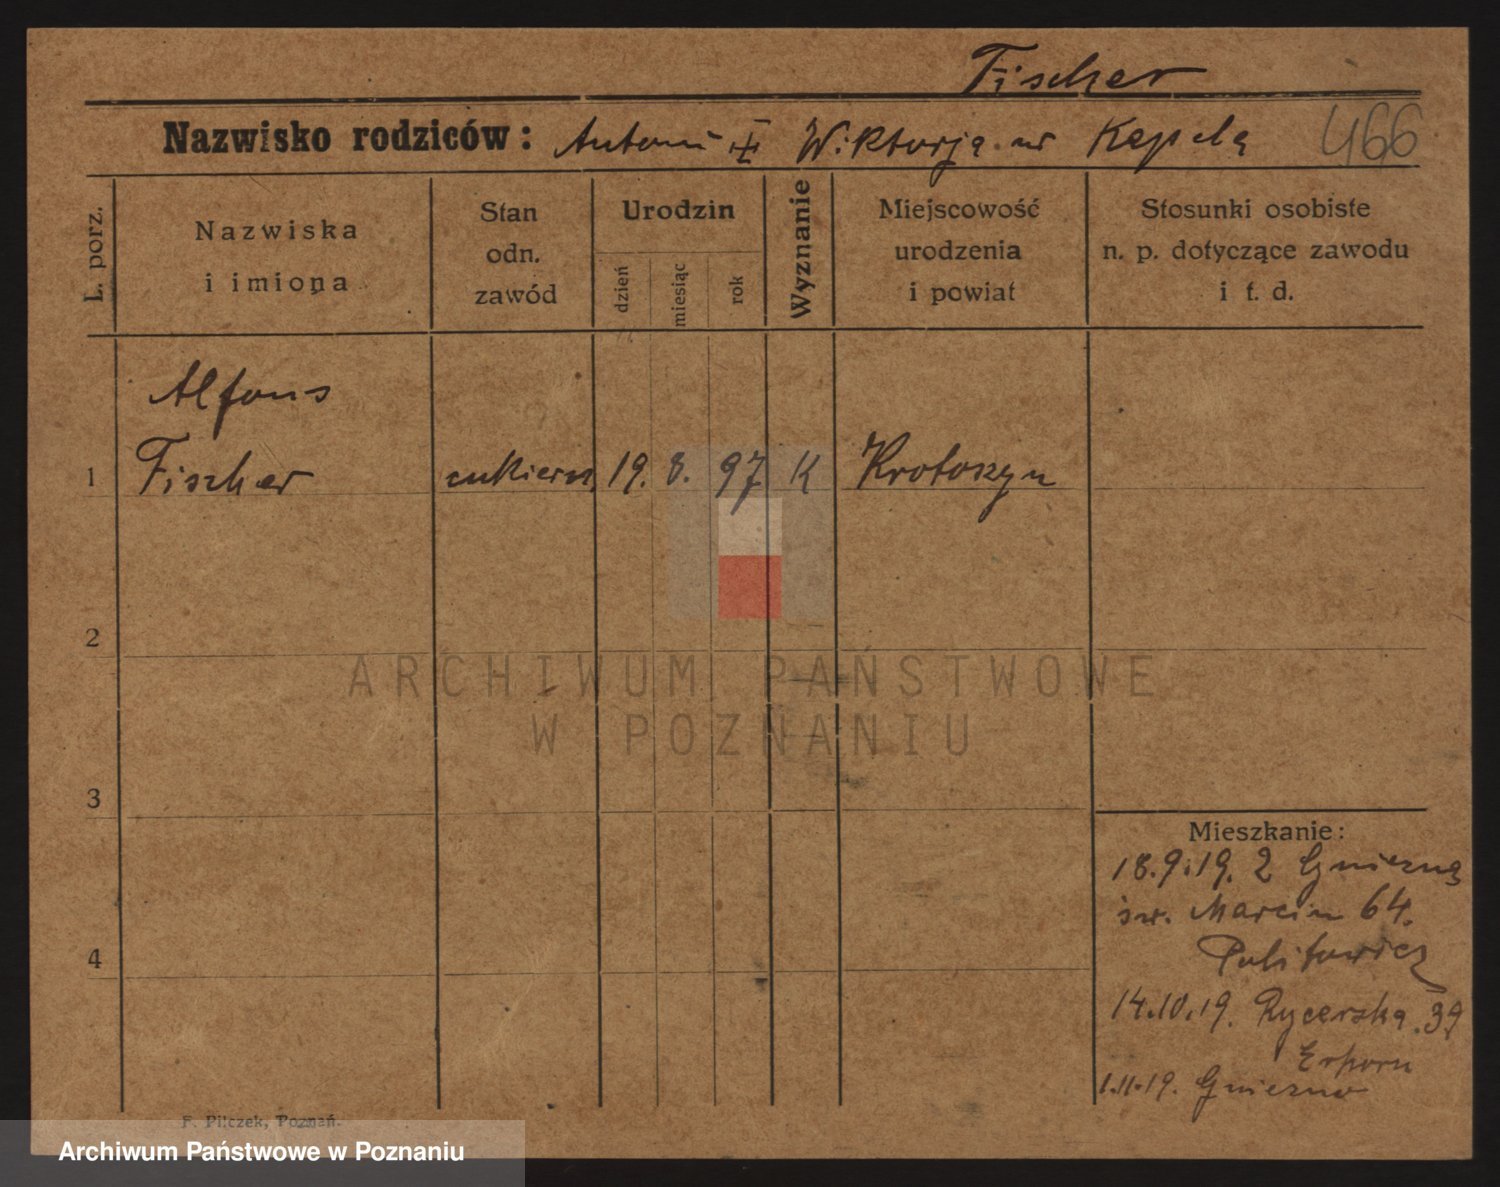 Fischer
Nazwisko rodziców: Antoni Wiktorja ur Kapela
466
L. porz.
Nazwiska
i imiona
Stan
odn.
zawód
Urodzin
dzień
miesiąc
rok
Wyznanie
Miejscowość
urodzenia
i powiat
Stosunki osobiste
n. p. dotyczące zawodu
i t. d.
Alfons
1 Fischer cukiern. 19. 8. 97 K Krotoszyn
2
ARCHIWUM PAŃSTWOWE
W POZNANIU
3
Mieszkanie:
18.9.19. Z Gniezna
św. Marcin 64.
4
14.10.19. Rycerska 39
1.11.19. Gniezno
F. Pilczek, Poznań.
Archiwum Państwowe w Poznaniu